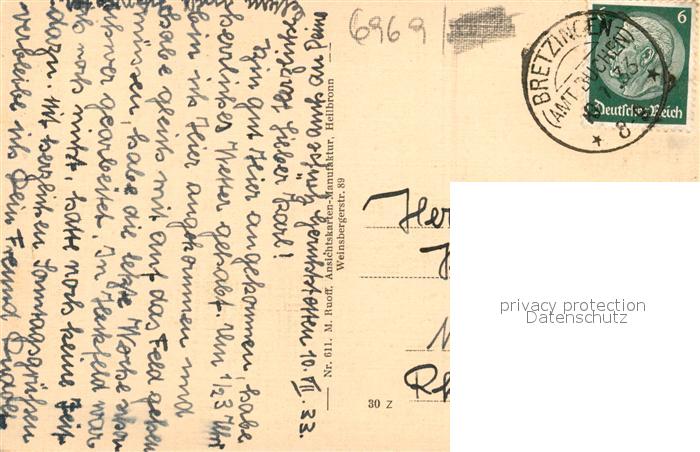 6969
6
BRETZINGEN
(AMT BUCHEN)
Deutsches Reich
10. VII. 33.
Lieber Karl!
Bin gut hier angekommen, habe
herrliches Wetter gehabt. Um 1/2 3 Uhr
bin ich hier angekommen und
habe gleich mit auf das Feld gehen
müssen, habe die letzte Woche schon
schwer gearbeitet. In war
ich noch nicht, hatte noch keine Zeit
dazu. Mit herzlichen Sonntagsgrüßen
verbleibe ich Dein Freund
Nr. 611. M. Ruoff, Ansichtskarten-Manufaktur, Heilbronn
Weinsbergerstr. 89
30 Z
Her
privacy protection
Datenschutz